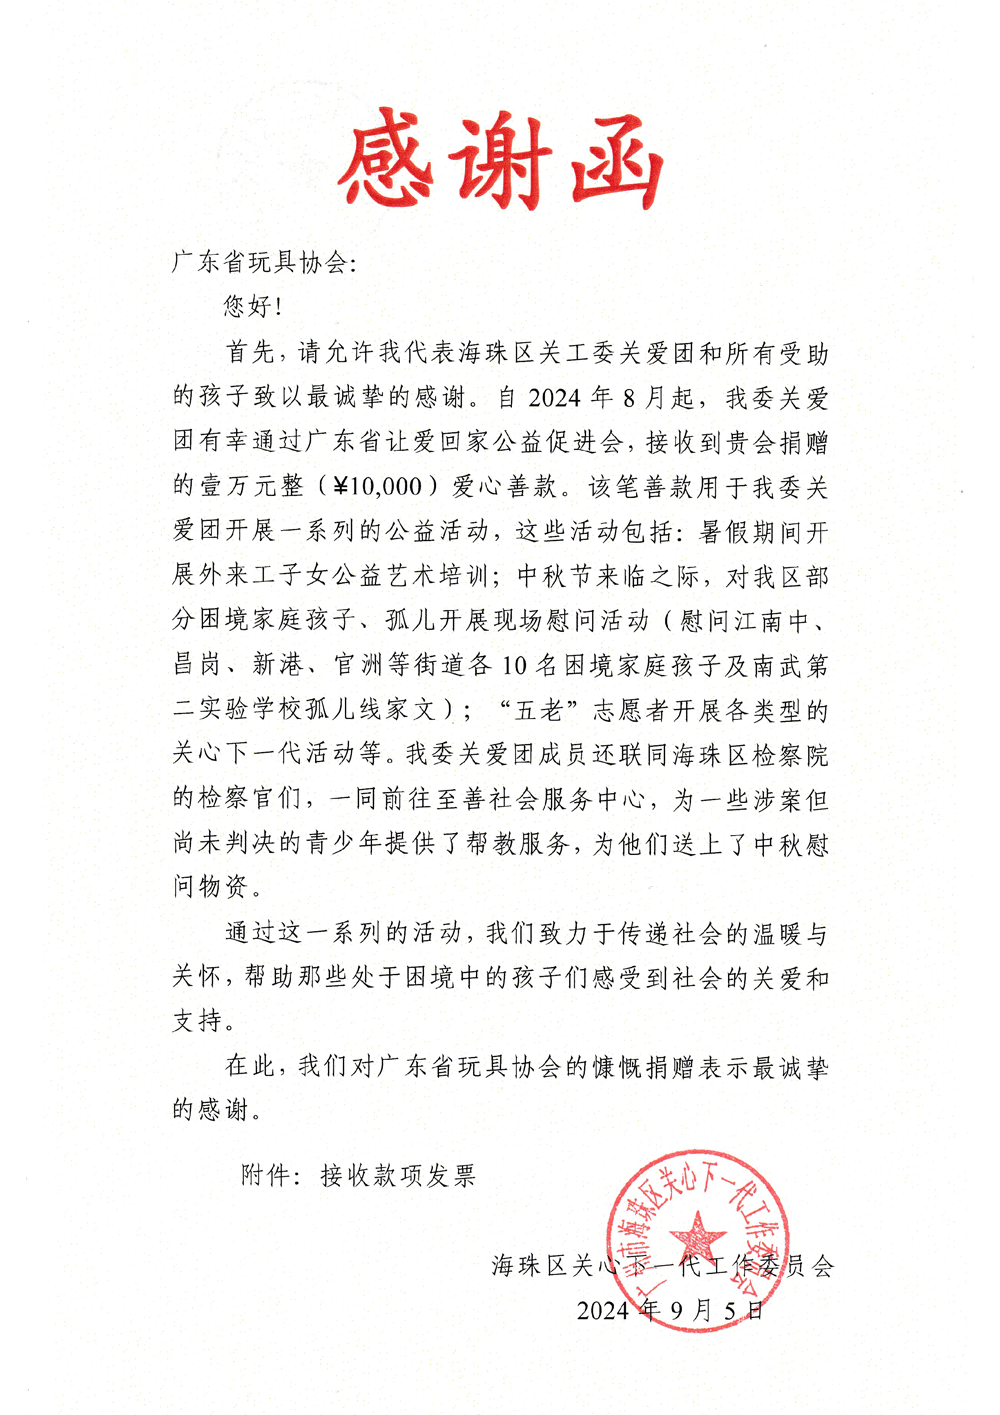 感谢函
广东省玩具协会：
您好！
首先，请允许我代表海珠区关工委关爱团和所有受助
的孩子致以最诚挚的感谢。自 2024 年 8 月起，我委关爱
团有幸通过广东省让爱回家公益促进会，接收到贵会捐赠
的壹万元整（¥10,000）爱心善款。该笔善款用于我委关
爱团开展一系列的公益活动，这些活动包括：暑假期间开
展外来工子女公益艺术培训；中秋节来临之际，对我区部
分困境家庭孩子、孤儿开展现场慰问活动（慰问江南中、
昌岗、新港、官洲等街道各 10 名困境家庭孩子及南武第
二实验学校孤儿线家文）；“五老”志愿者开展各类型的
关心下一代活动等。我委关爱团成员还联同海珠区检察院
的检察官们，一同前往至善社会服务中心，为一些涉案但
尚未判决的青少年提供了帮教服务，为他们送上了中秋慰
问物资。
通过这一系列的活动，我们致力于传递社会的温暖与
关怀，帮助那些处于困境中的孩子们感受到社会的关爱和
支持。
在此，我们对广东省玩具协会的慷慨捐赠表示最诚挚
的感谢。
附件：接收款项发票
广州市海珠区关心下一代工作委员会
海珠区关心下一代工作委员会
2024 年 9 月 5 日